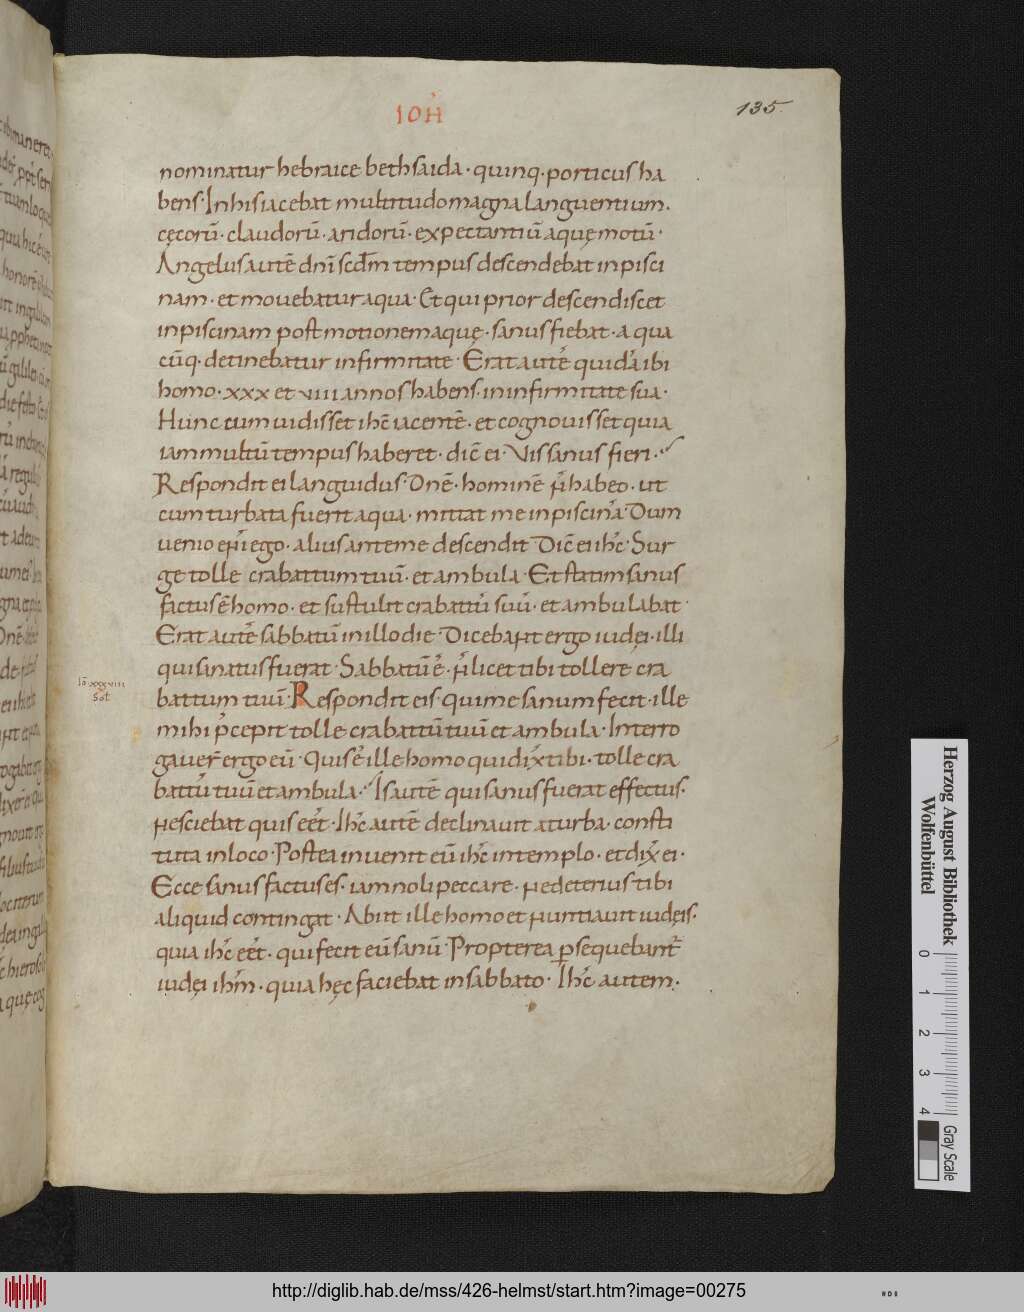 IOH̄
135.
nominatur hebraice bethsaida · quinq · porticus ha
bens · In his iacebat multitudo magna languentium .
cęcorū · claudorū · aridorū · expectantiū aquę motū ·
Angelus autē dn̄i scd̄m tempus descendebat in pisci
nam · et mouebatur aqua · Et qui prior descendisset
in piscinam post motionem aquę · sanus fiebat · a qua
cūq · detinebatur infirmitate · Erat autē quidā ibi
homo · xxx et viii annos habens · in infirmitate sua ·
Hunc cum uidisset ihc̄ iacentē · et cognouisset quia
iam multū tempus haberet · dic̄ ei · Vis sanus fieri ·
Respondit ei languidus · Dn̄e · hominē n̄ habeo · ut
cum turbata fuerit aqua · mittat me in piscinā · Dum
uenio en̄i ego · alius ante me descendit · Dic̄ ei ihc̄ · Sur
ge tolle crabattum tuū · et ambula · Et statim sanus
factus ē homo · et sustulit crabattū suū · et ambulabat ·
Erat autē sabbatū in illo die · Dicebant ergo iudęi · illi
qui sanatus fuerat · Sabbatū ē · n̄ licet tibi tollere cra
battum tuū · Respondit eis · qui me sanum fecit · ille
Iō xxxviiii
Sol
mihi p̄cepit tolle crabattū tuū et ambula · Interro
gauer̄ ergo eū · Quis ē ille homo qui dix̄ tibi · tolle cra
battū tuū et ambula · Is autē qui sanus fuerat effectus ·
nesciebat quis eēt · Ihc̄ autē declinauit a turba · consti
tuta in loco · Postea inuenit eū ihc̄ in templo · et dix̄ ei ·
Ecce sanus factus es · iam noli peccare · ne deterius tibi
aliquid contingat · Abiit ille homo et nuntiauit iudęis ·
quia ihc̄ eēt · qui fecit eū sanū · Propterea ꝑsequebant̄
iudęi ihm̄ · quia hęc faciebat in sabbato · Ihc̄ autem ·
Herzog August Bibliothek
Wolfenbüttel
0 1 2 3 4
Gray Scale
http://diglib.hab.de/mss/426-helmst/start.htm?image=00275